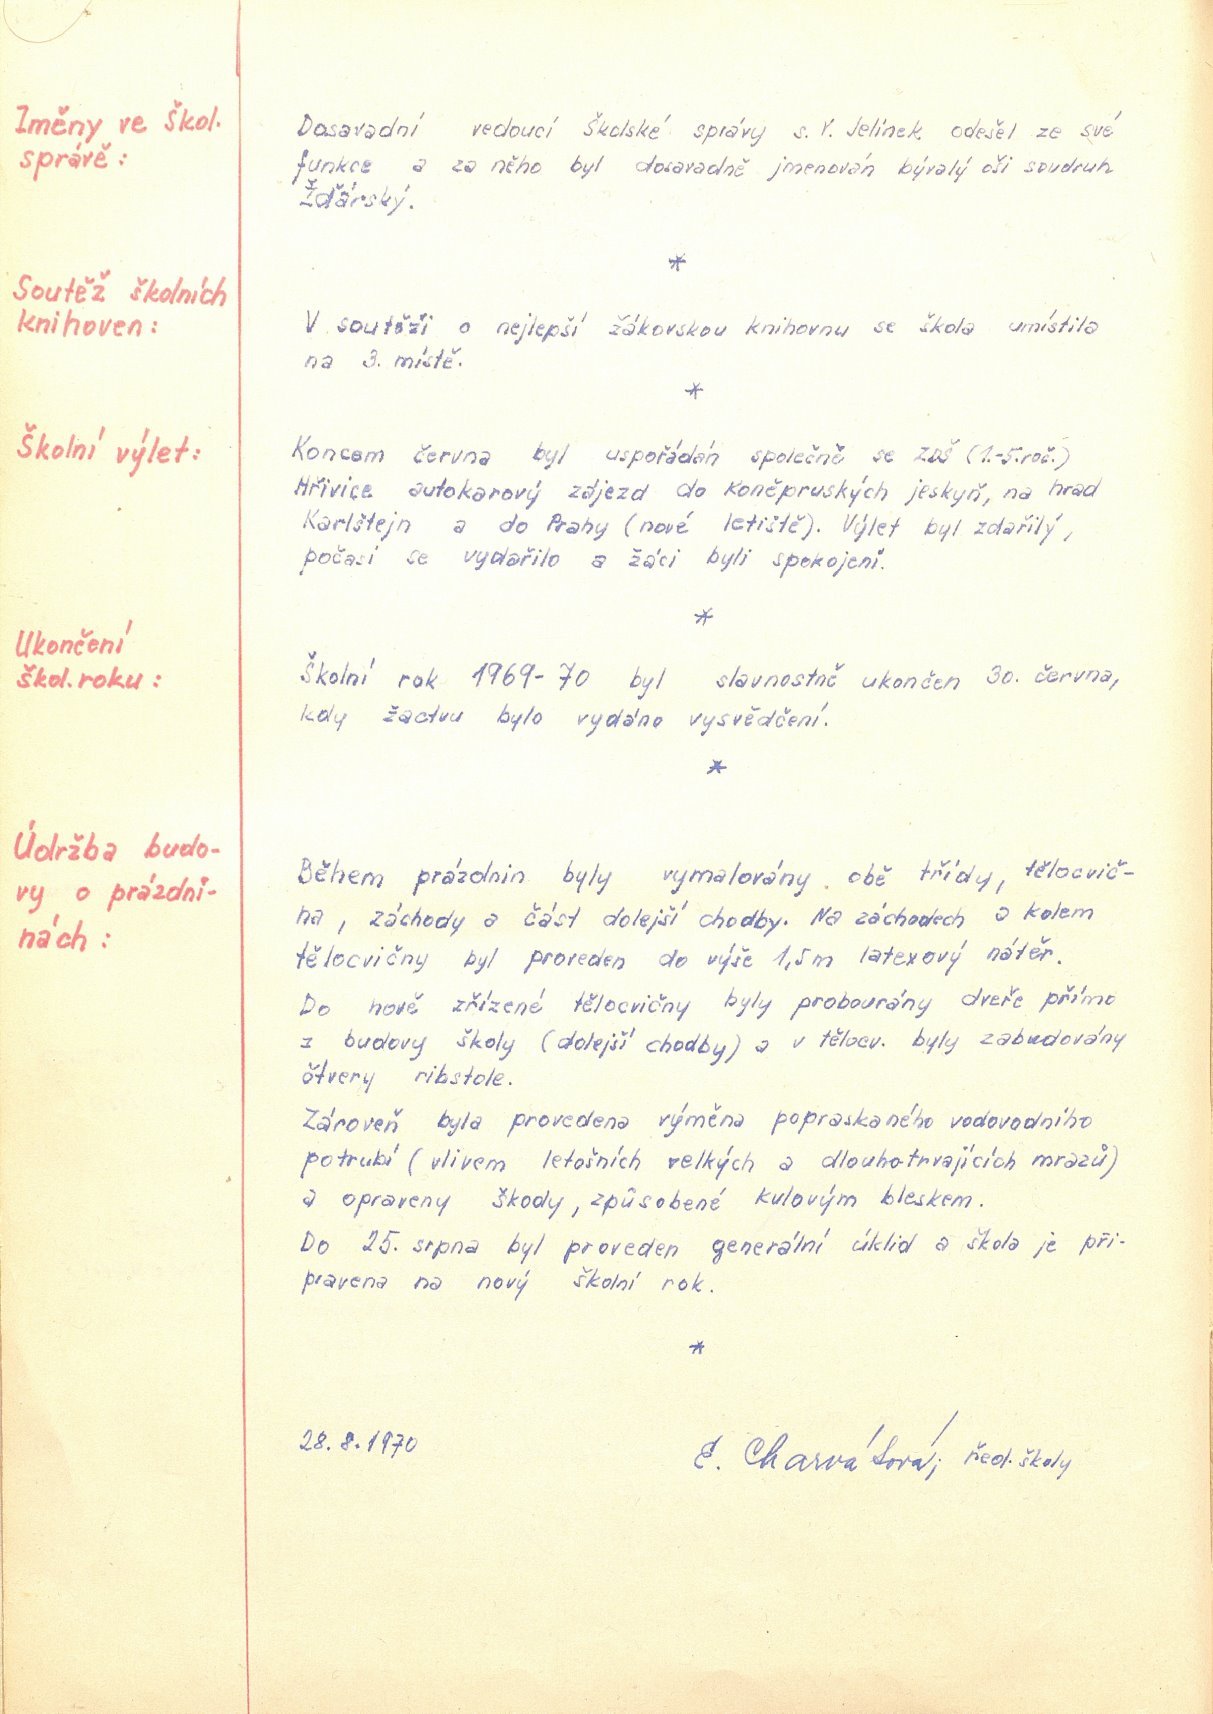 Změny ve škol.
správě:
Dosavadní vedoucí školské správy s. V. Jelínek odešel ze své
funkce a za něho byl dosavadně jmenován bývalý oši soudruh
Žďárský.
*
Soutěž školních
knihoven:
V soutěži o nejlepší žákovskou knihovnu se škola umístila
na 3. místě.
*
Školní výlet:
Koncem června byl uspořádán společně se ZDŠ (1.-5.roč.)
Hřivice autokarový zájezd do Koněpruských jeskyň, na hrad
Karlštejn a do Prahy (nové letiště). Výlet byl zdařilý,
počasí se vydařilo a žáci byli spokojeni.
*
Ukončení
škol. roku:
Školní rok 1969-70 byl slavnostně ukončen 30. června,
kdy žactvu bylo vydáno vysvědčení.
*
Údržba budo-
vy o prázdni-
nách:
Během prázdnin byly vymalovány obě třídy, tělocvič-
na, záchody a část dolejší chodby. Na záchodech a kolem
tělocvičny byl proveden do výše 1,5m latexový nátěr.
Do nově zřízené tělocvičny byly probourány dveře přímo
z budovy školy (dolejší chodby) a v tělocv. byly zabudovány
čtvery ribstole.
Zároveň byla provedena výměna popraskaného vodovodního
potrubí (vlivem letošních velkých a dlouhotrvajících mrazů)
a opraveny škody, způsobené kulovým bleskem.
Do 25. srpna byl proveden generální úklid a škola je při-
pravena na nový školní rok.
*
28. 8. 1970
E. Charvátová, řed. školy